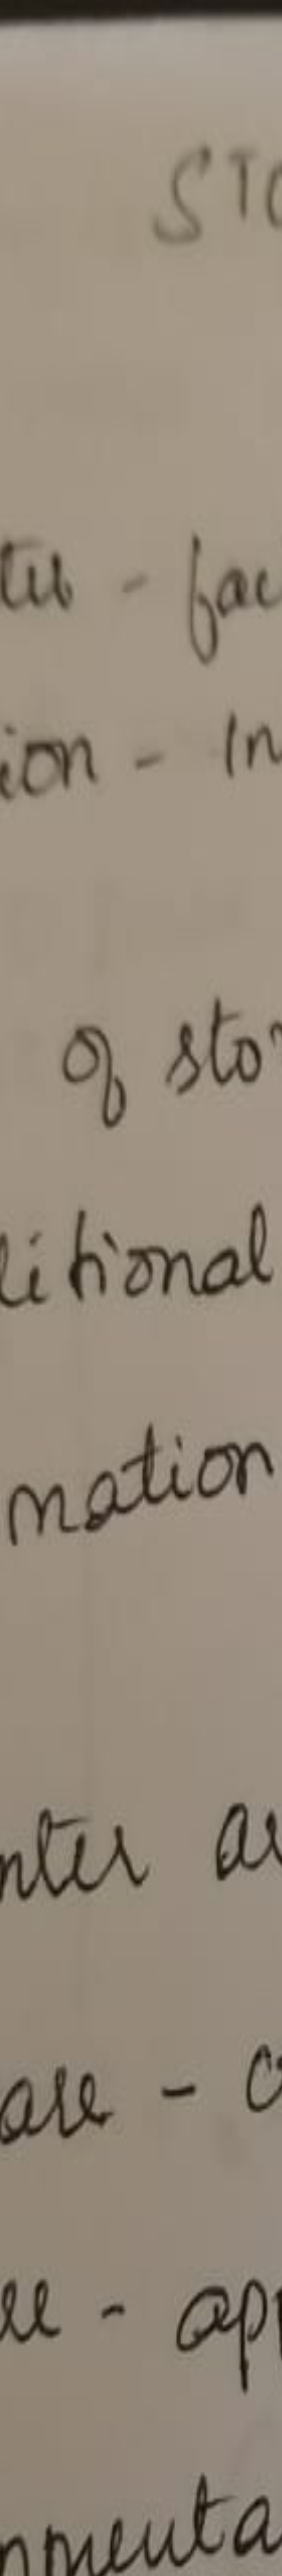 STO
- fac
ion - In
of stor
ditional
mation
nter ar
are - c
re - app
nmenta